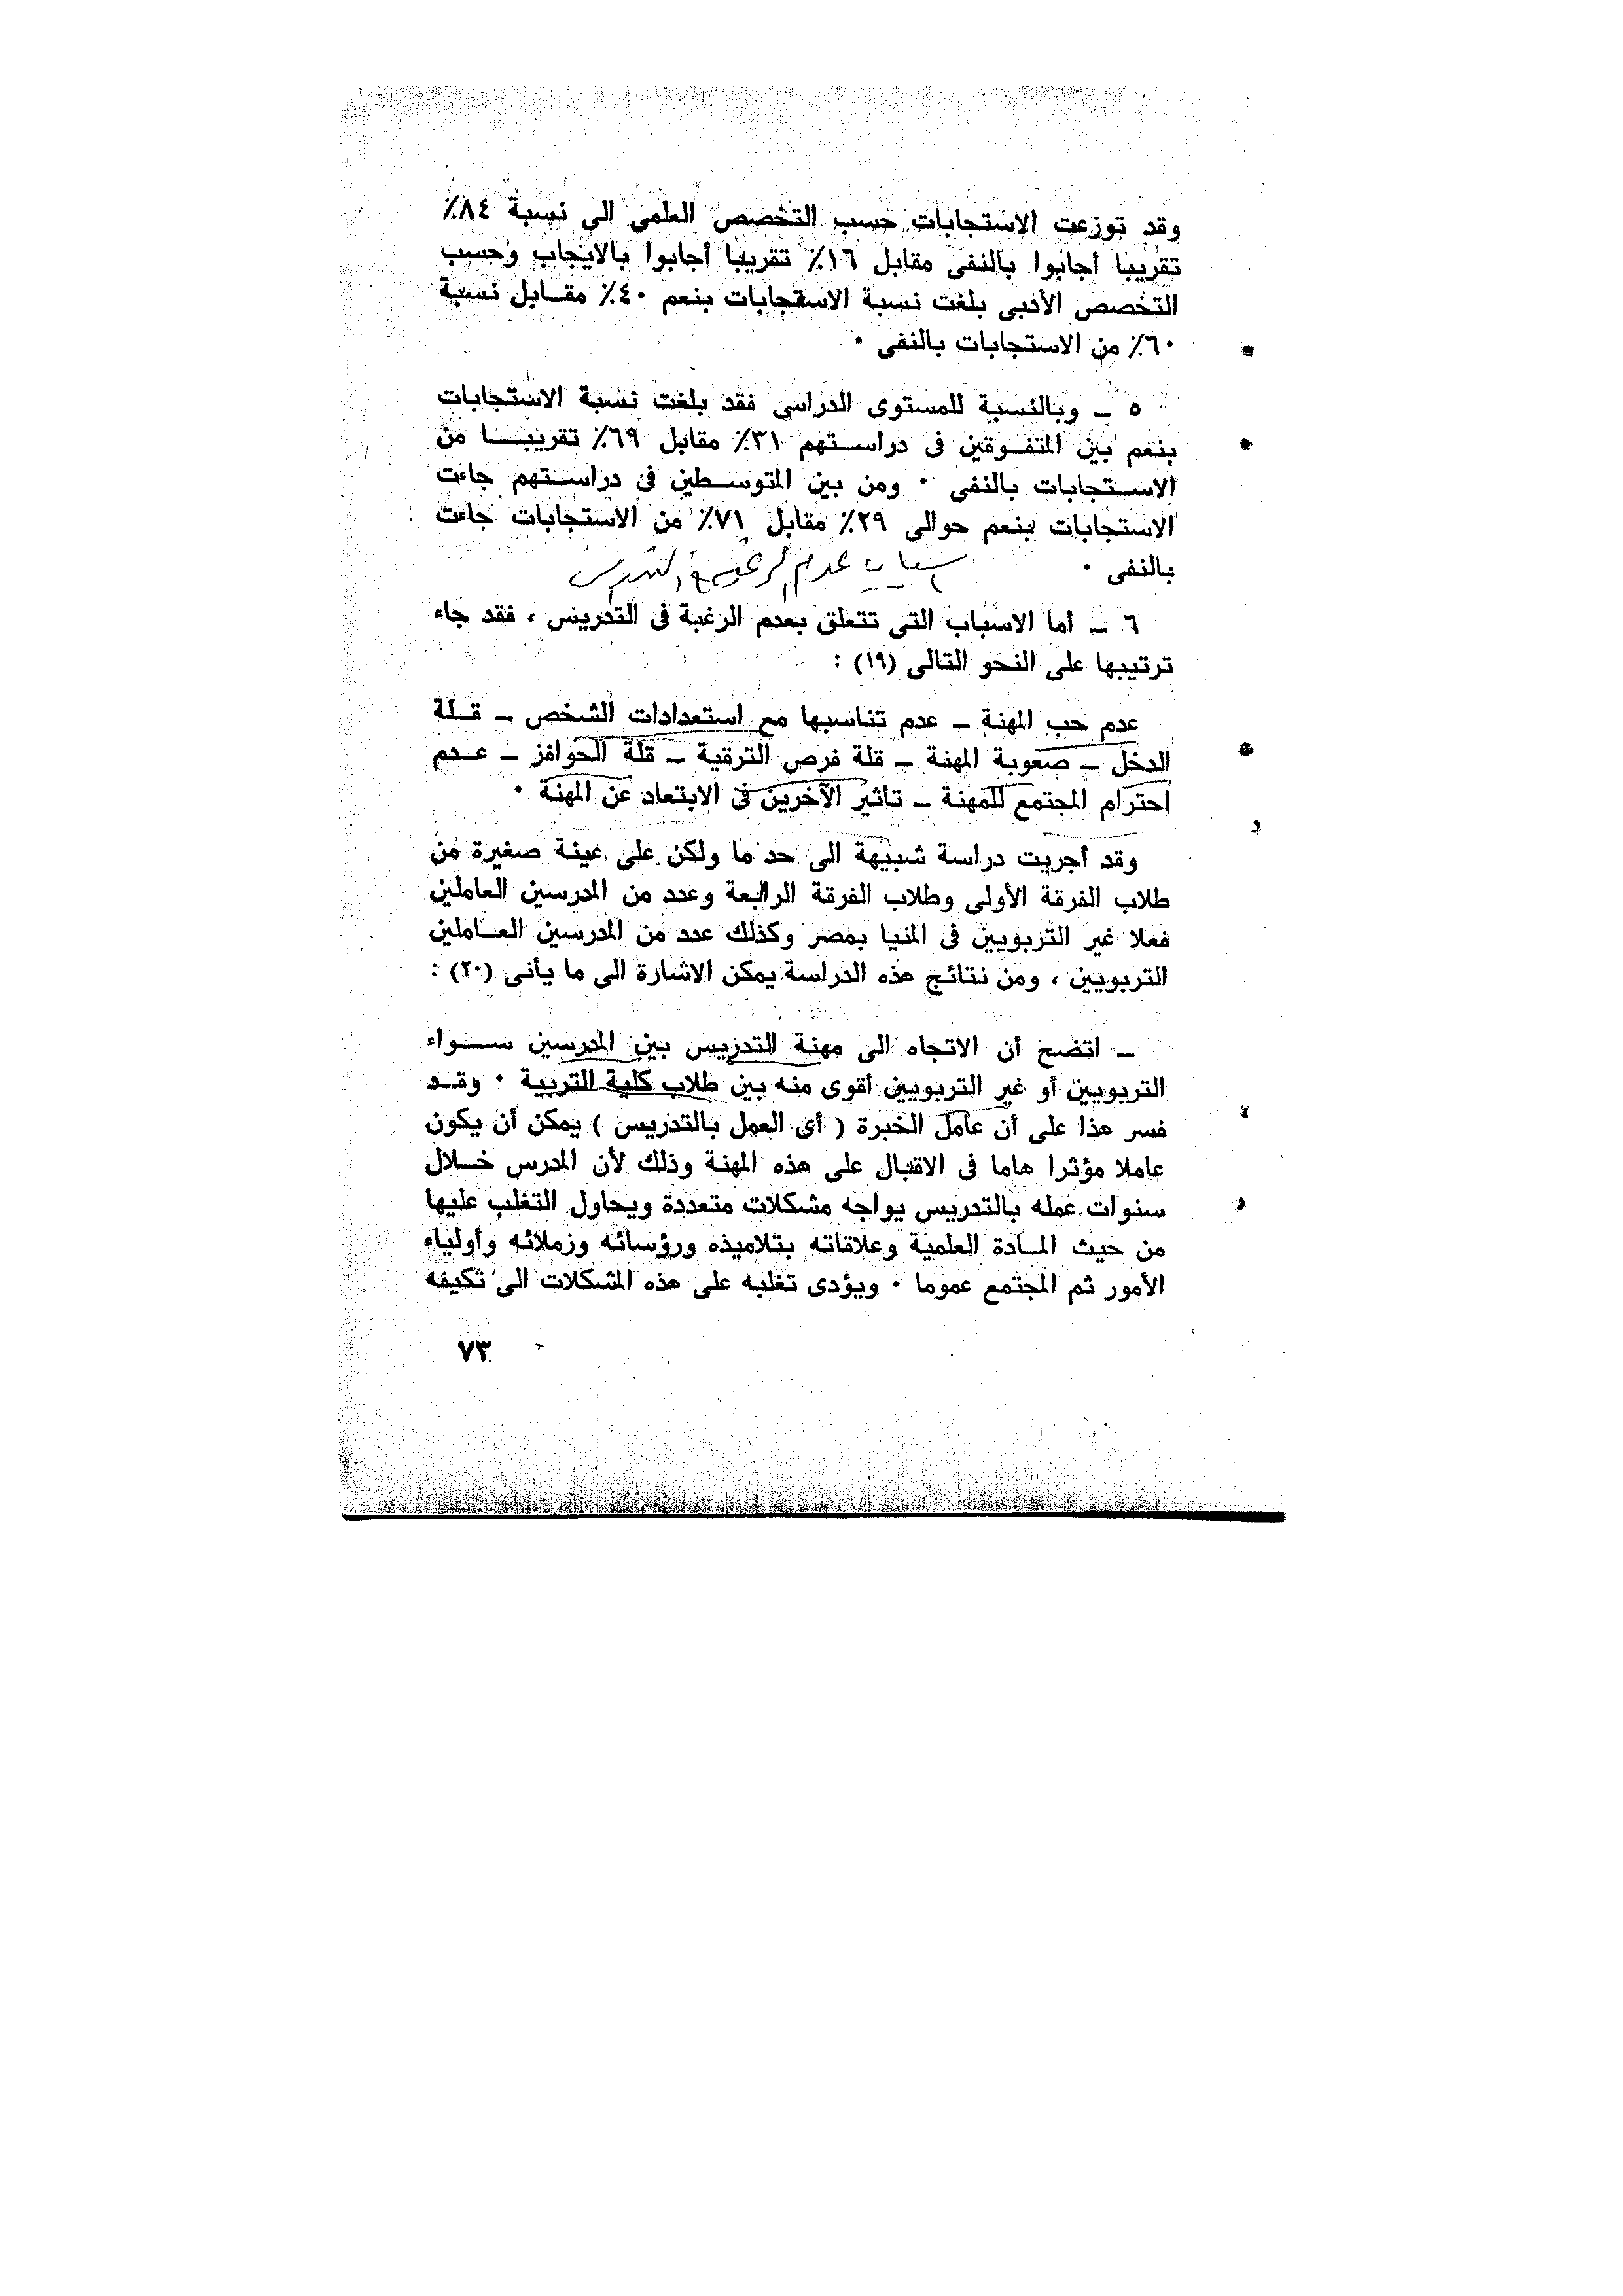 وقد توزعت الاستجابات حسب التخصص العلمى الى نسبة ٨٤٪
تقريبا أجابوا بالنفى مقابل ١٦٪ تقريبا أجابوا بالايجاب وحسب
التخصص الأدبى بلغت نسبة الاستجابات بنعم ٤٠٪ مقـابل نسبة
٦٠٪ من الاستجابات بالنفى ٠
٥ ـ وبالنسبة للمستوى الدراسي فقد بلغت نسبة الاستجابات
بنعم بين المتفـوقين فى دراسـتهم ٣١٪ مقابل ٦٩٪ تقريبـا من
الاسـتجابات بالنفى ٠ ومن بين المتوسـطين فى دراسـتهم جاءت
الاستجابات بنعم حوالى ٢٩٪ مقابل ٧١٪ من الاستجابات جاءت
بالنفى ٠
اسباب عدم الرغبة فى التدريس
٦ ـ أما الاسباب التى تتعلق بعدم الرغبة فى التدريس ، فقد جاء
ترتيبها على النحو التالى (١٩) :
عدم حب المهنة ـ عدم تناسبها مع استعدادات الشخص ـ قـلة
الدخل ـ صعوبة المهنة ـ قلة فرص الترقية ـ قلة الحوافز ـ عـدم
احترام المجتمع للمهنة ـ تأثير الآخرين فى الابتعاد عن المهنة ٠
وقد أجريت دراسة شبيهة الى حد ما ولكن على عينة صغيرة من
طلاب الفرقة الأولى وطلاب الفرقة الرابعة وعدد من المدرسين العاملين
فعلا غير التربويين فى المنيا بمصر وكذلك عدد من المدرسين العـاملين
التربويين ، ومن نتائج هذه الدراسة يمكن الاشارة الى ما يأتى (٢٠) :
ـ اتضح أن الاتجاه الى مهنة التدريس بين المدرسين سـواء
التربويين أو غير التربويين أقوى منه بين طلاب كلية التربية ٠ وقـد
فسر هذا على أن عامل الخبرة ( أى العمل بالتدريس ) يمكن أن يكون
عاملا مؤثرا هاما فى الاقبال على هذه المهنة وذلك لأن المدرس خـلال
سنوات عمله بالتدريس يواجه مشكلات متعددة ويحاول التغلب عليها
من حيث المـادة العلمية وعلاقاته بتلاميذه ورؤسائه وزملائه وأولياء
الأمور ثم المجتمع عموما ٠ ويؤدى تغلبه على هذه المشكلات الى تكيفه
٧٣